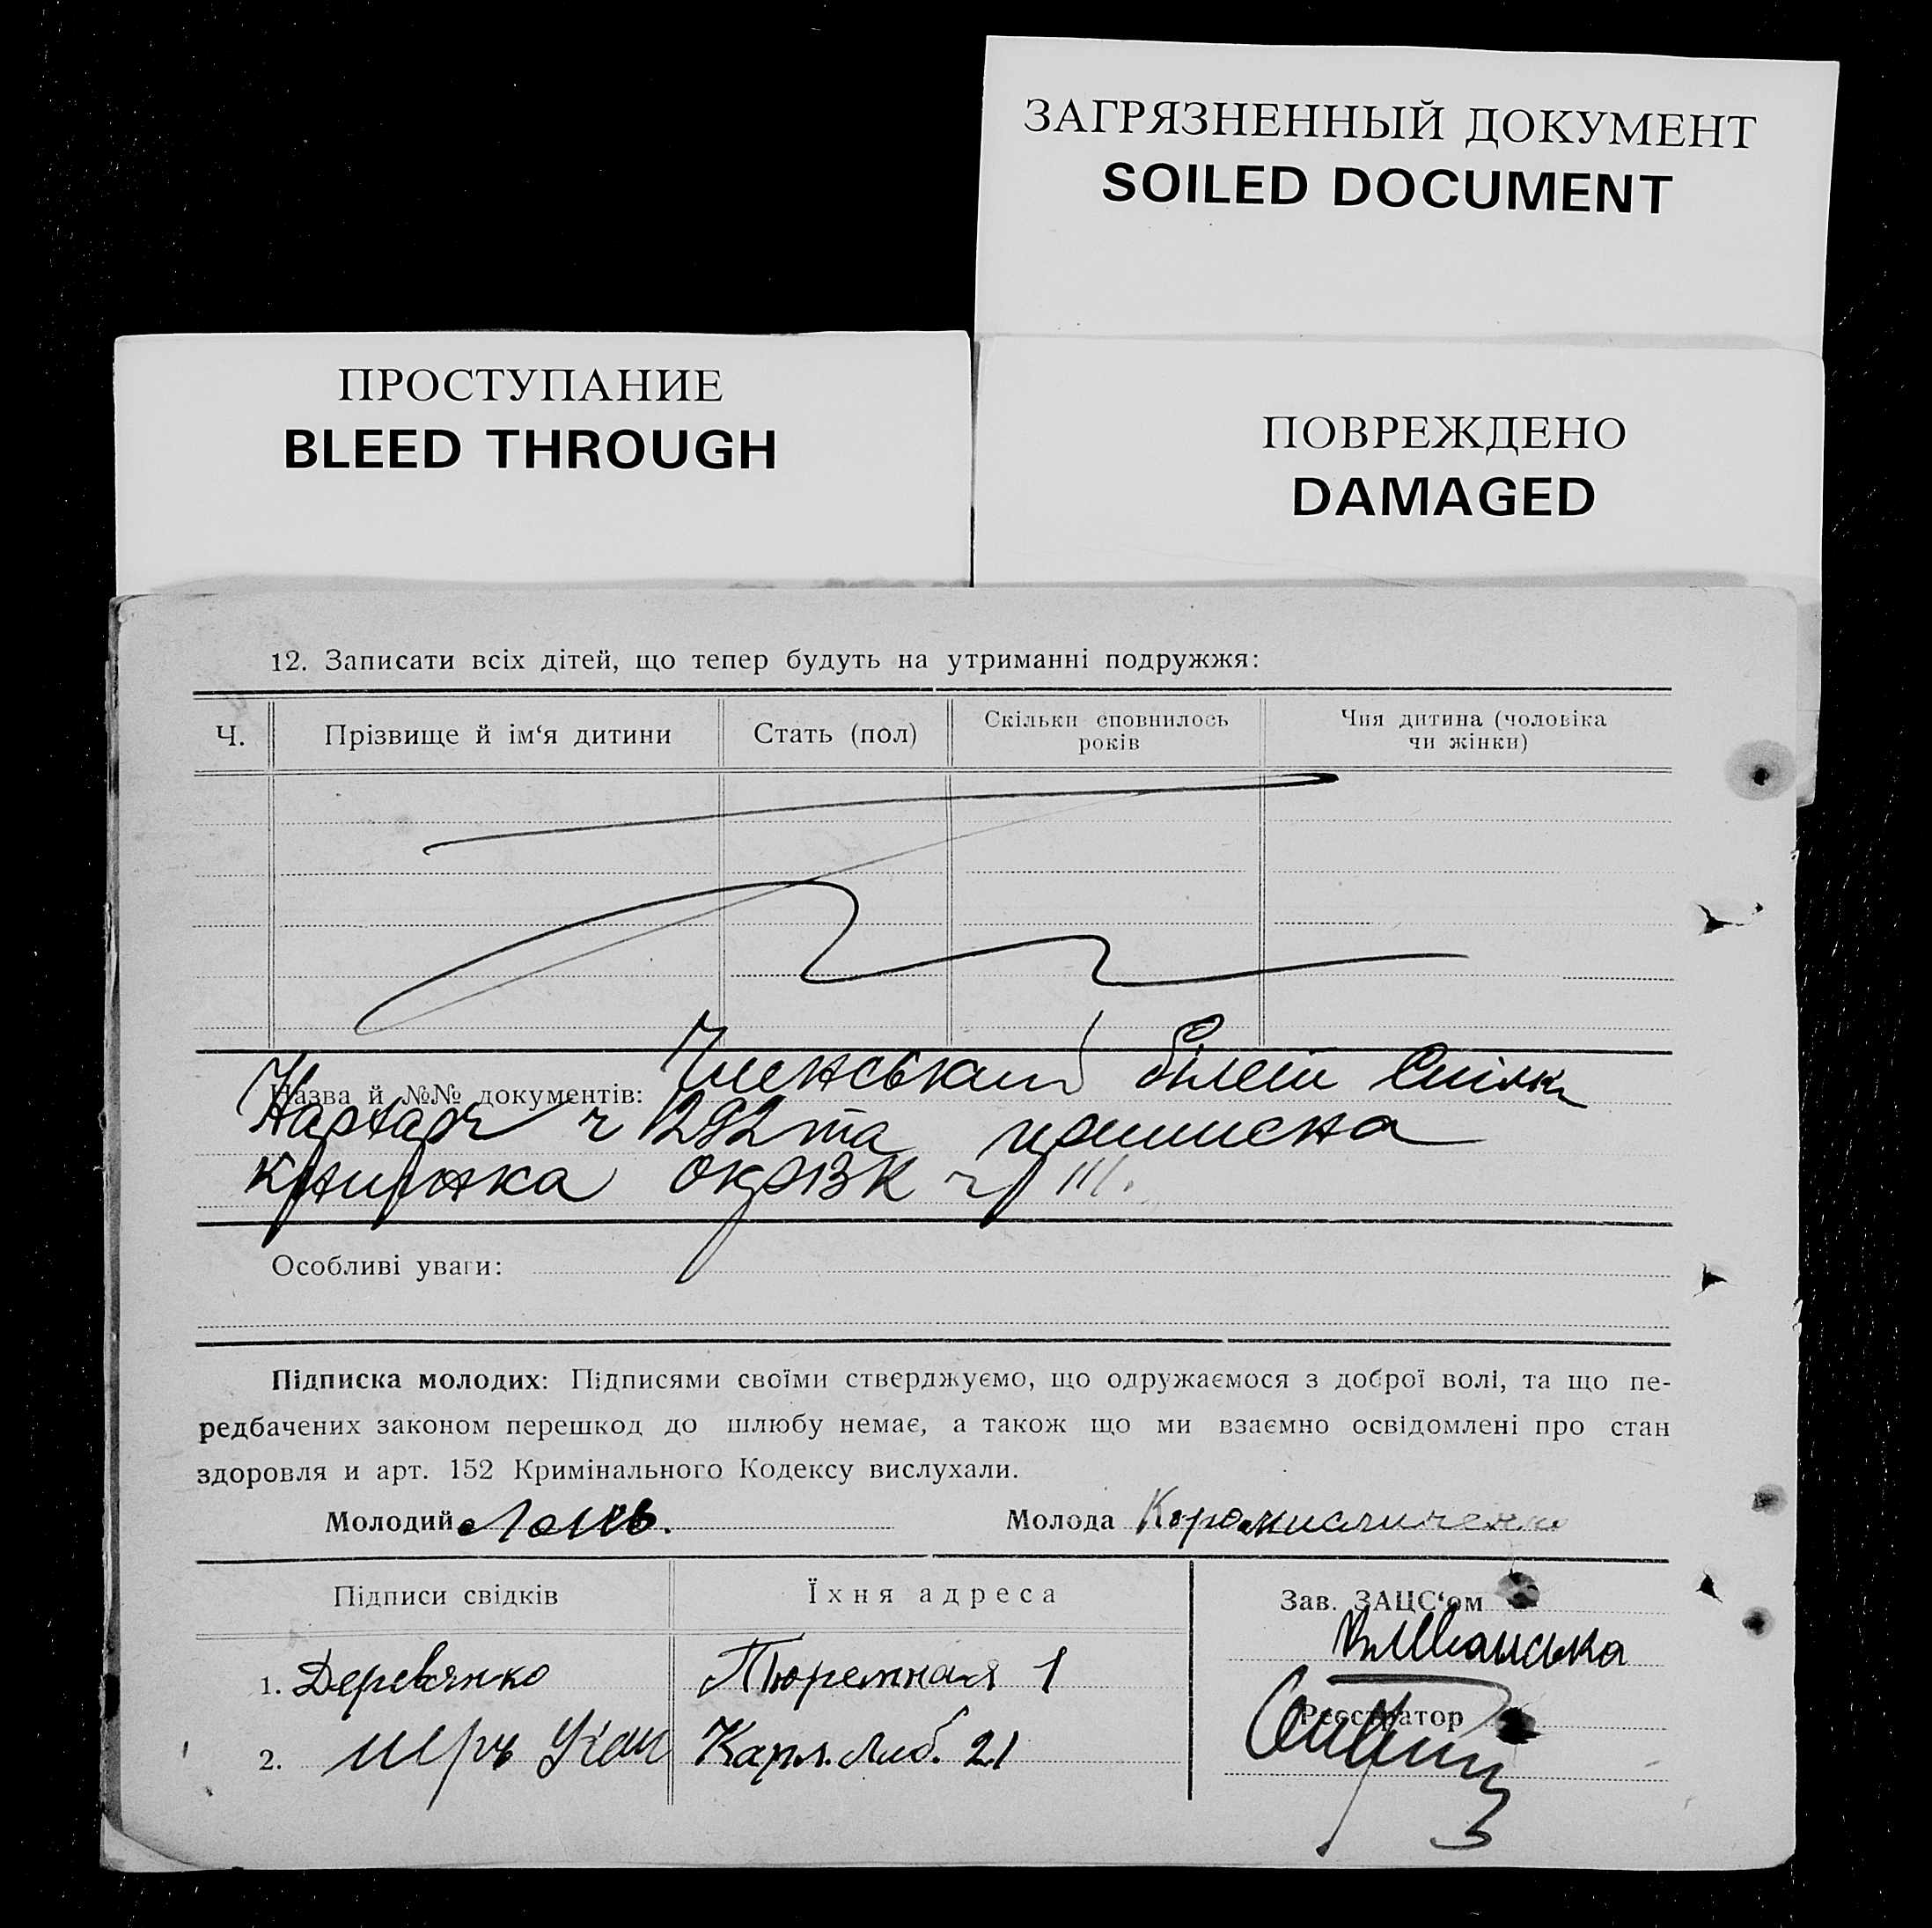 ЗАГРЯЗНЕННЫЙ ДОКУМЕНТ
SOILED DOCUMENT
ПРОСТУПАНИЕ
BLEED THROUGH
ПОВРЕЖДЕНО
DAMAGED
12. Записати всіх дітей, що тепер будуть на утриманні подружжя:
Ч.
Прізвище й ім‘я дитини
Стать (пол)
Скільки сповнилось
років
Чия дитина (чоловіка
чи жінки)
Назва й №№ документів: Членський білет Спілки
Нархарч ч 1292 та
книжка ч III.
Особливі уваги:
Підписка молодих: Підписями своїми стверджуємо, що одружаємося з доброї волі, та що пе-
редбачених законом перешкод до шлюбу немає, а також що ми взаємно освідомлені про стан
здоровля и арт. 152 Кримінального Кодексу вислухали.
Молодий
Молода Коромисличенко
Підписи свідків
Їхня адреса
Зав. ЗАЦС‘ом
1. Деревянко
Тюремная 1
Реєстратор
2.
Карл. Либ. 21